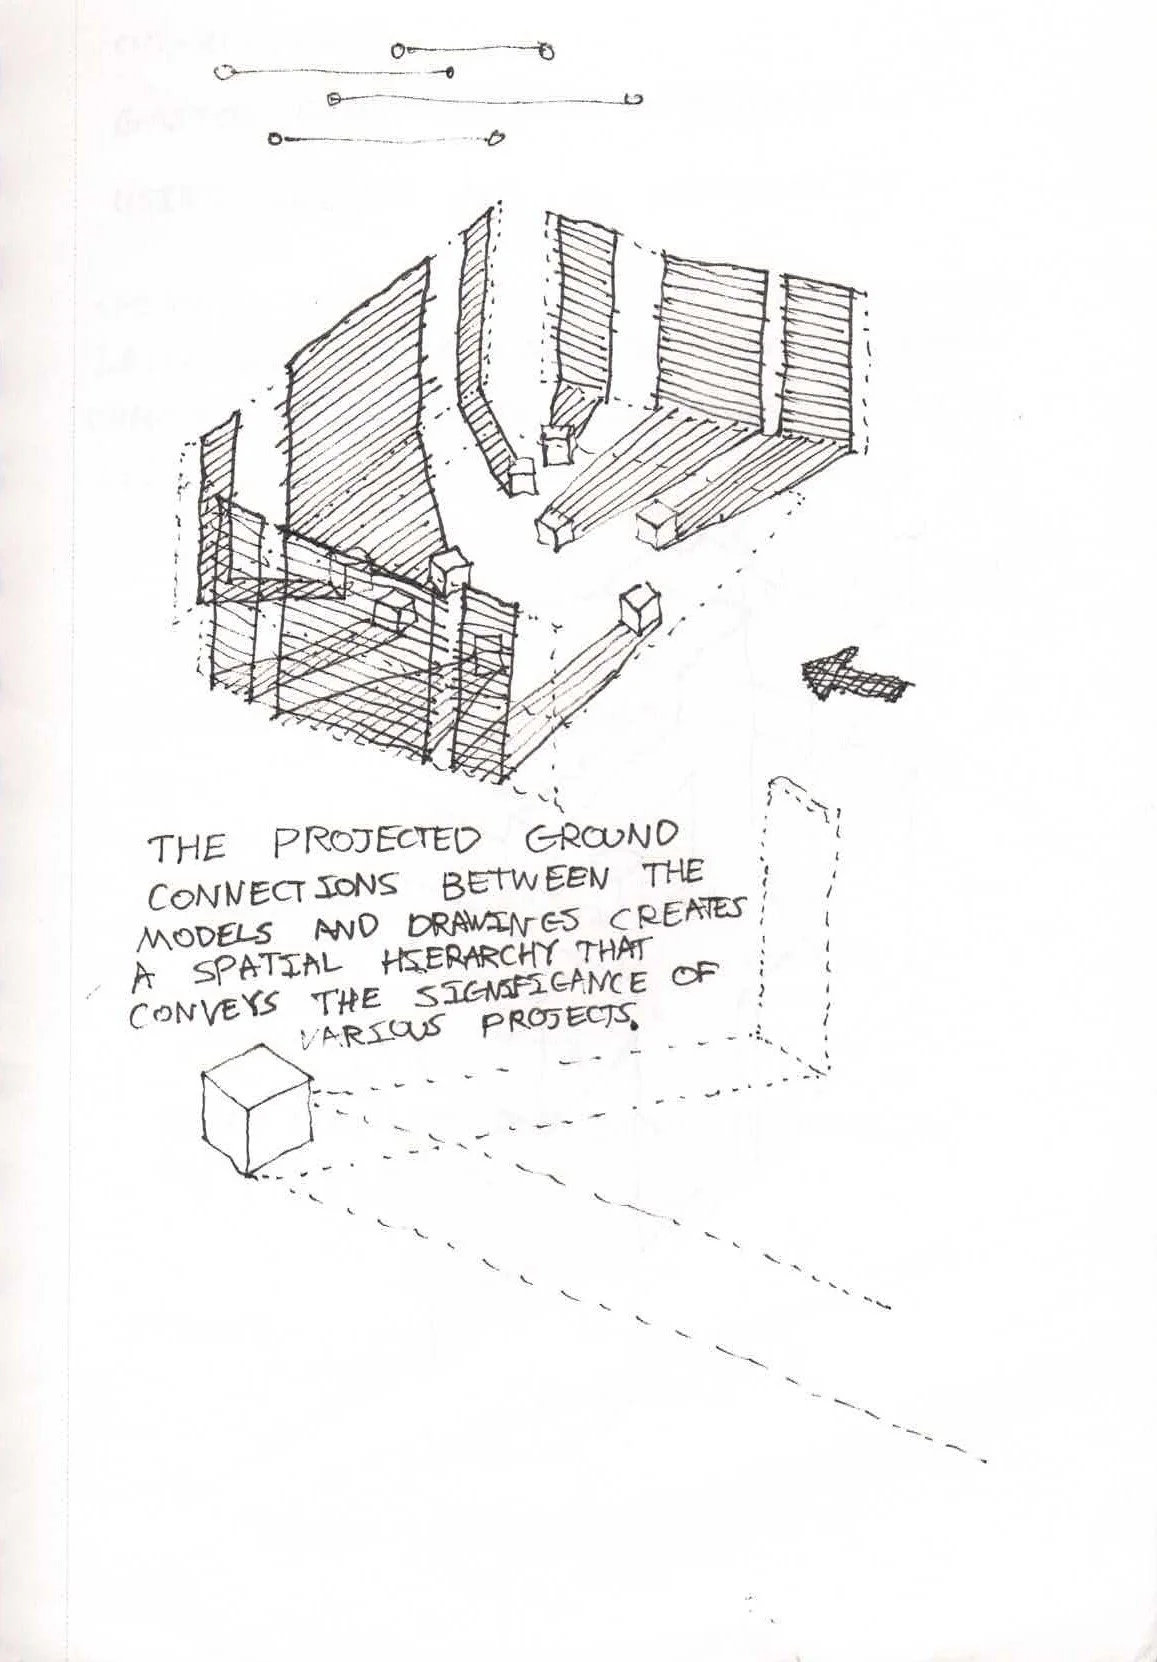 THE PROJECTED GROUND
CONNECTIONS BETWEEN THE
MODELS AND DRAWINGS CREATES
A SPATIAL HIERARCHY THAT
CONVEYS THE SIGNIFICANCE OF
VARIOUS PROJECTS.